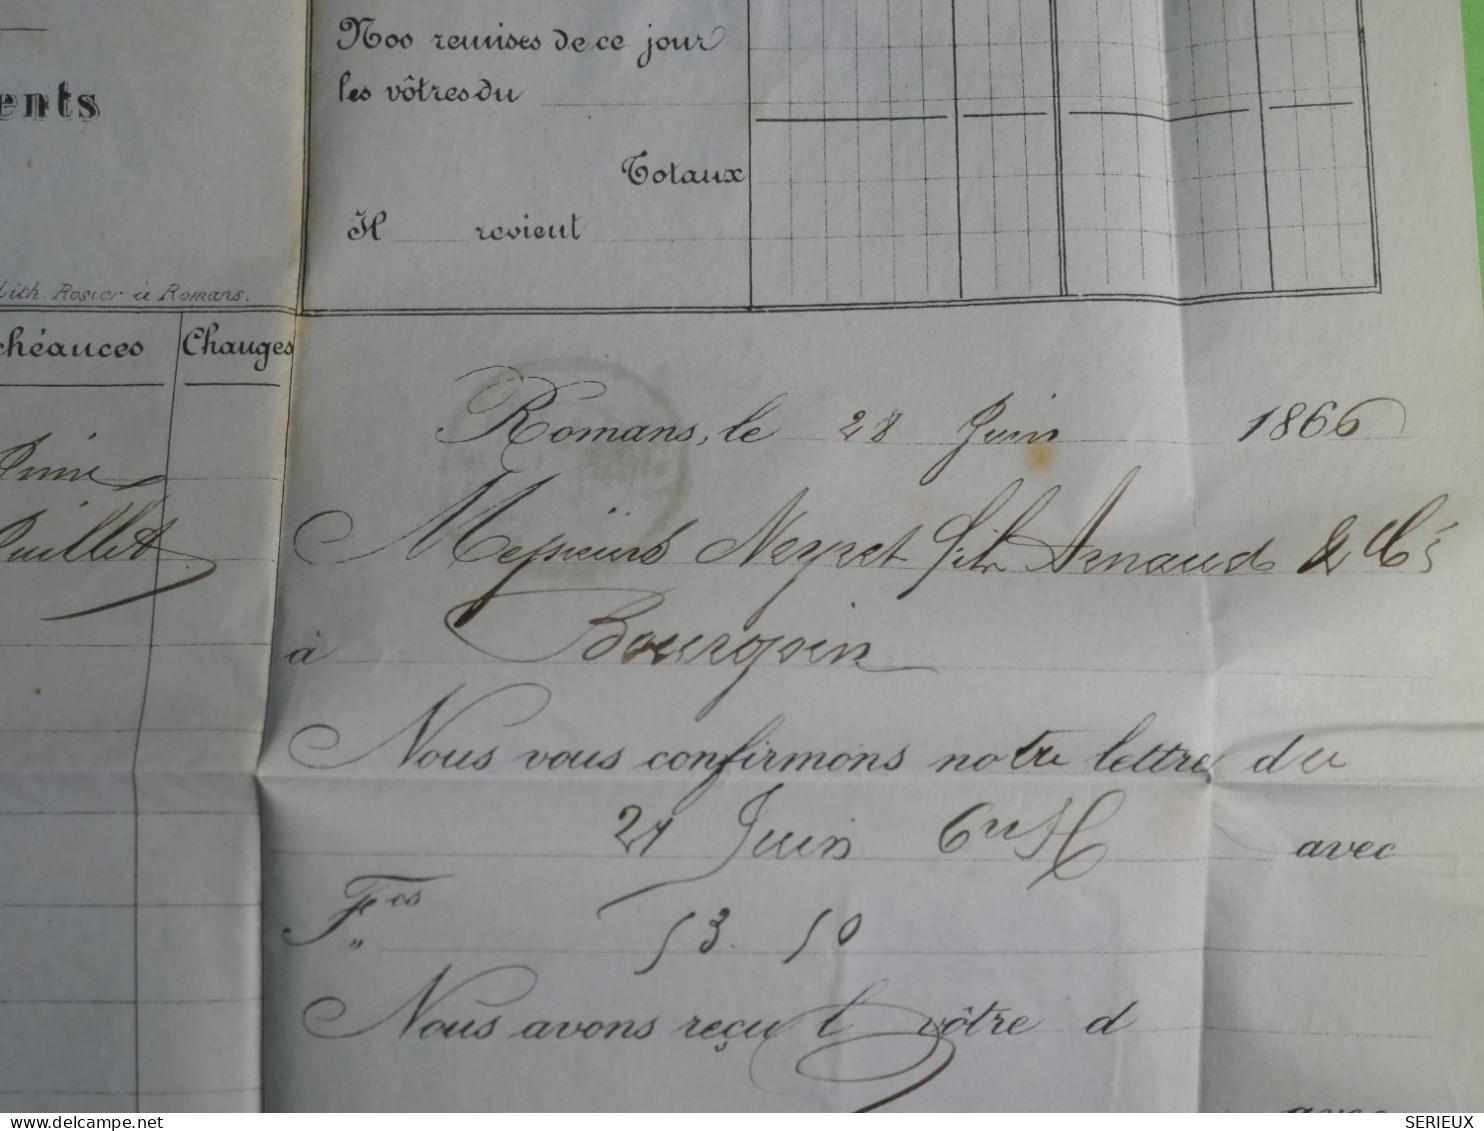 Nos remises de ce jour
les vôtres du
ents
Totaux
Il revient
Lith. Rosier à Romans.
chéances Changes
Romans, le 28 Juin 1866
Juillet
Messieurs Neyret fils Arnaud & Cie
à Bourgoin
Nous vous confirmons notre lettre du
21 Juin avec
Fcs 53. 50
Nous avons reçu l vôtre d
avec
www.delcampe.net
SERIEUX